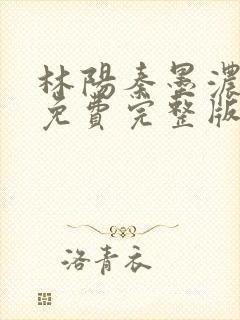 林陽秦墨濃
免費完整版
洛青衣